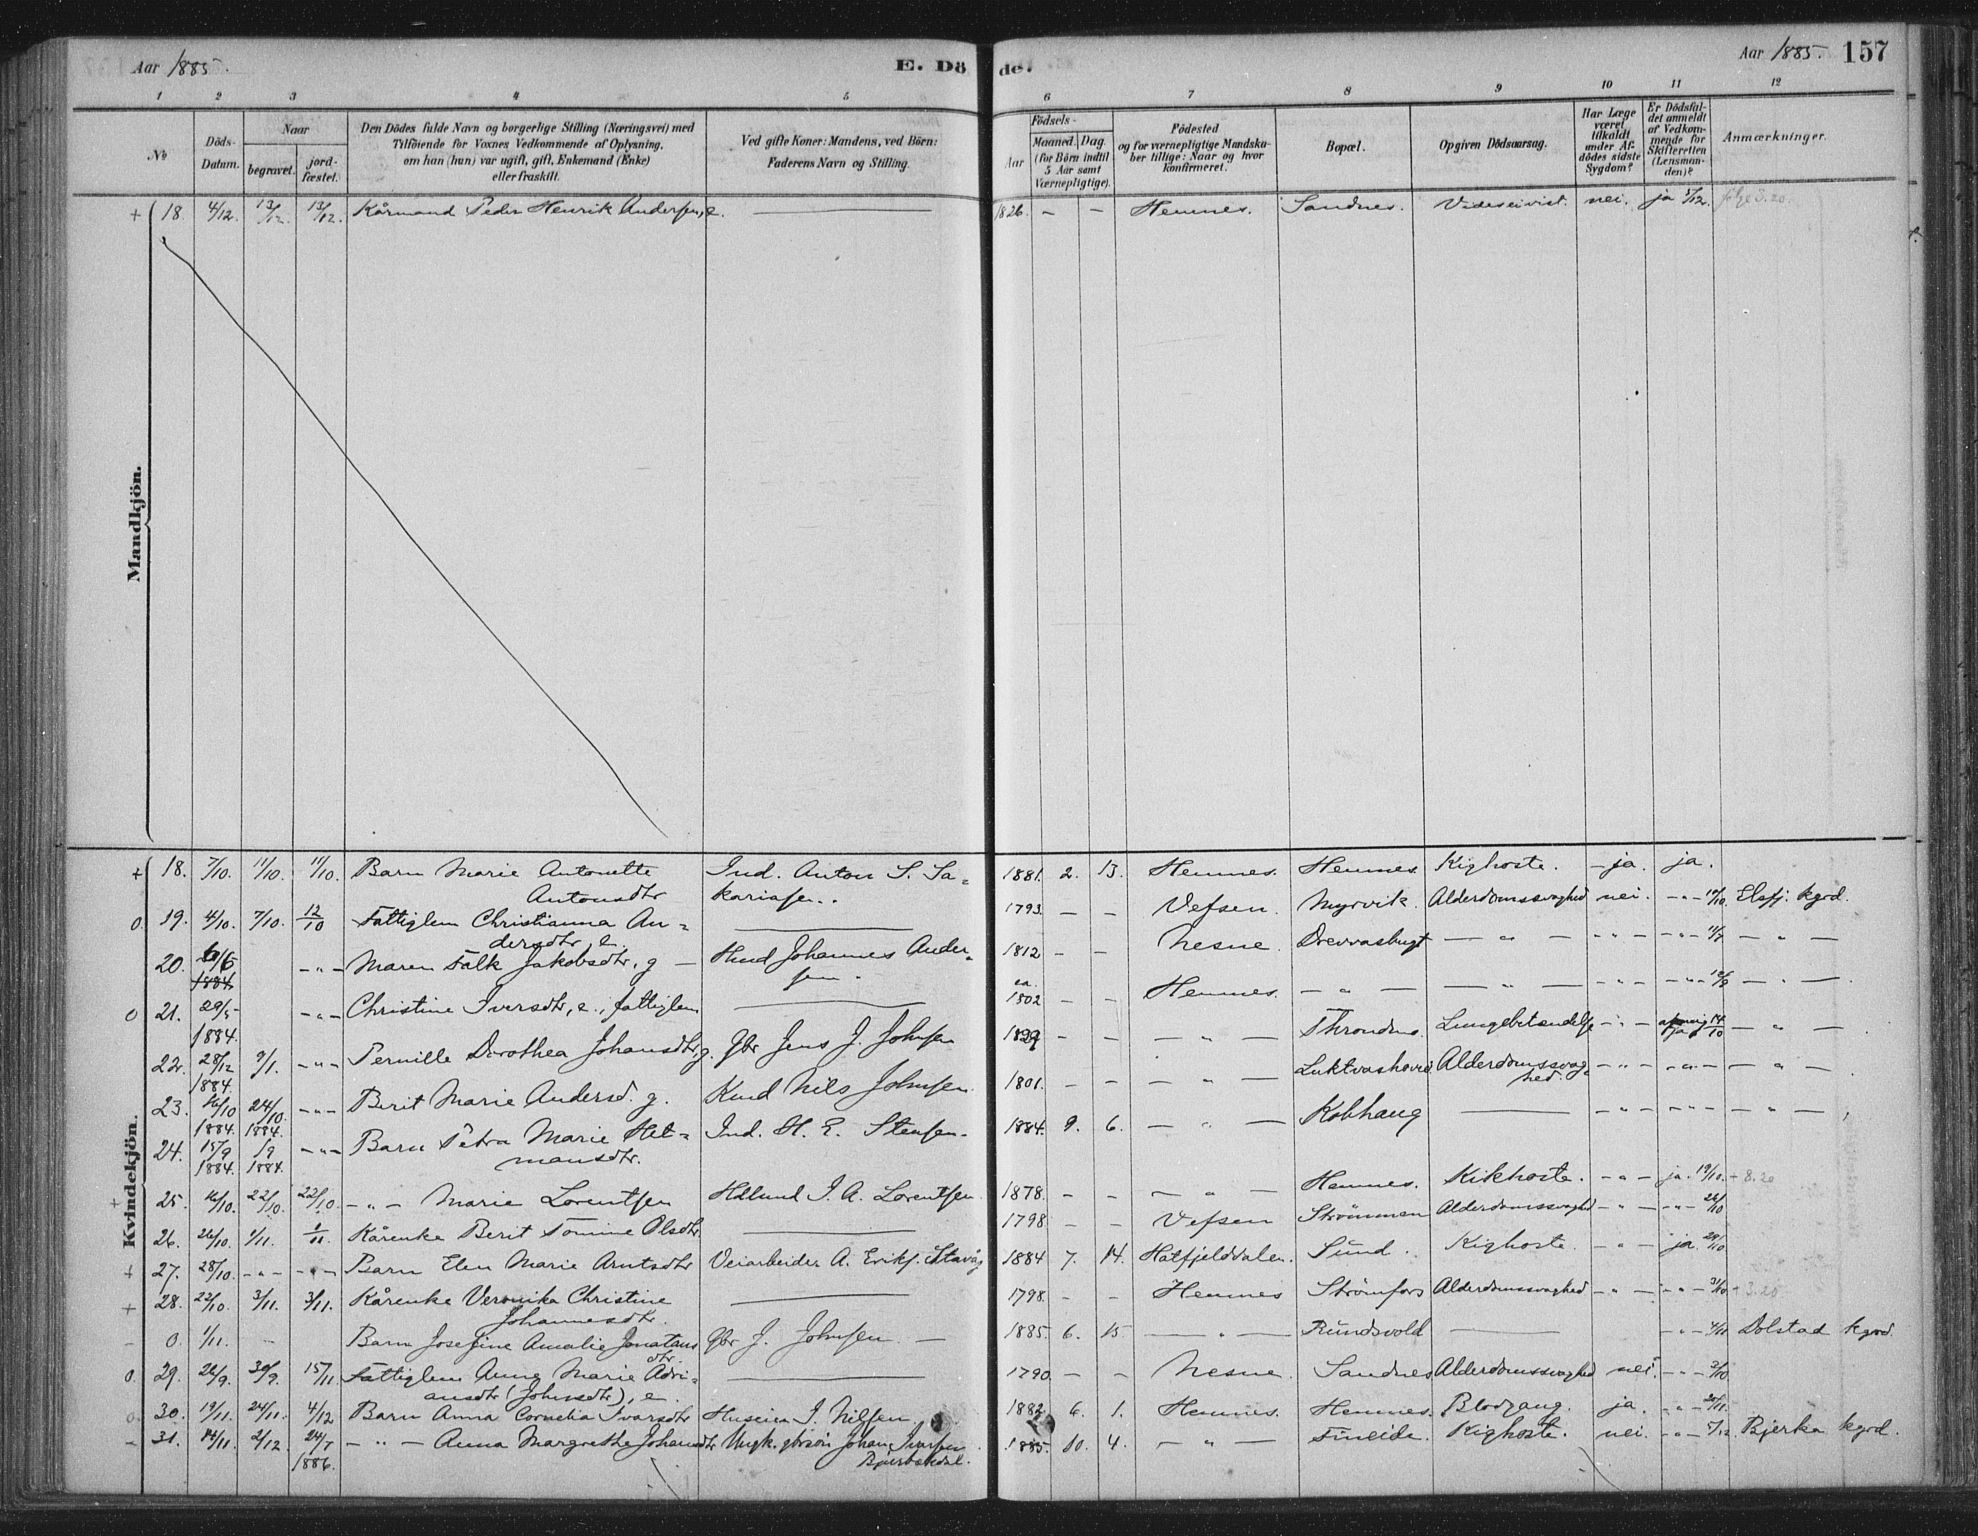 Aar 1885.
E. Dö
de.
Aar 1885. 157
1 2 3 4 5 6 7 8 9 10 11 12
No
Döds-
Datum.
Naar
begravet. jord-
fæstet.
Den Dödes fulde Navn og borgerlige Stilling (Næringsvei) med
Tilföiende for Voxnes Vedkommende af Oplysning,
om han (hun) var ugift, gift, Enkemand (Enke)
eller fraskilt.
Ved gifte Koner: Mandens, ved Börn:
Faderens Navn og Stilling.
Födsels-
Aar Maaned. Dag.
(for Börn indtil
5 Aar samt
Værnepligtige).
Födested
og for værnepligtige Mandska-
ber tillige: Naar og hvor
konfirmeret.
Bopæl.
Opgiven Dödsaarsag.
Har Læge
været
tilkaldt
under Af-
dödes sidste
Sygdom?
Er Dödsfal-
det anmeldt
af Vedkom-
mende for
Skifteretten
(Lensman-
den)?
Anmærkninger.
Mandkjön.
+ 18. 4/12. 13/12. 13/12. Kårmand Peder Henrik Andersen, e. — 1826. — — Hemnes. Sandnes. nei. ja 5/12.
Kvindekjön.
+ 18. 7/10. 11/10. 11/10. Barn Marie Antonette Ind. Anton S. Sa- 1881. 2. 13. Hemnes. Hemnes. Kighoste. — ja. ja.
Antonsdtr kariasen.
0. 19. 4/10. 7/10. 12/10 Fattiglem Christianna An- — 1793. — — Vefsen. Myrvik. Alderdomssvaghed nei. — " — 10/10. Elsfj. kgrd.
dersdtr e.
20. 1884. — " — Maren Falk Jakobsdtr, g — Hmd Johannes Ander- 1812 — — Nesne. Drevvasbugt — " — — " — — " — — " —
sen.
0 21. 29/5 1884. — " — Christine Iversdtr, e., fattiglem — ca. 1802 — — Hemnes. — " — — " — — " — — " — — " —
22. 28/12 1884. 9/1. — " — Pernille Dorothea Johansdtr g. Gbr Jens J. Johnsen — — — " — Lungebetændelse — " — 14/10 — " —
23. 16/10 1884. 24/10. 1884. — " — Berit Marie Andersd. g. Kmd Nils Johnsen. 1801. — — — " — Alderdomssvag- — " — — " — — " —
hed.
24. 15/9 1884. 19 1884. — " — Barn Petra Marie Het- Ind. H. E. Stensen. 1884. 9. 6. — " — Kobhaug — — " — — " — — " —
mansdtr.
+ 25. 16/10. 22/10. 22/10. — " — Marie Lorentsen I. A. Lorentsen. 1878. — — — " — Hemnes. Kikhoste. — " — ja. 19/10. + 8.20
26. 26/10. 1/11. 1/11. Kårenke Berit Tomine Olsdtr. — 1798 — — Vefsen Strömmen Alderdomssvaghed — " — — " — 26/10
+ 27. 28/10. — " — — " — Barn Elen Marie Arntsdtr Veiarbeider A. Eriks. Stavåg 1884 7. 14. Hatfjelddalen. Sund. Kighoste. — " — ja. 29/10
+ 28. 22/10. 3/11. 3/11. Kårenke Veronika Christine — 1798. — — Hemnes Strömfors Alderdomssvaghed — " — — " — 31/10 + 3.20
Johannesdtr.
— 0. 1/11. — Barn Josefine Amalie Jonatans Gbr J. Johnsen — 1885. 6. 15. — " — Rundsvold — — " — 4/11 Dolstad kgrd.
dtr.
0. 29. 26/9. 30/9. 15/11. Fattiglem Anne Marie Adri- — 1790. — — Nesne. Sandnes Alderdomssvaghed nei. — " — 2/10
ansdtr (Johnsdtr), e.
0. 30. 19/11. 24/11. 4/12 Barn Anna Cornelia Ivarsdtr Huseier I. Nilsen 6. 1. Hemnes. Hemnes. Blodgang. ja. — " —
— 31. 14/11. 2/12. 24/7 1886. — " — Anna Margrethe Johansdtr Ungk. gbrsön Johan Ivarsen 1885. 10. 4. — " — Fineide. Kighoste. nei. — " — 5/12. Bjerka kgrd.